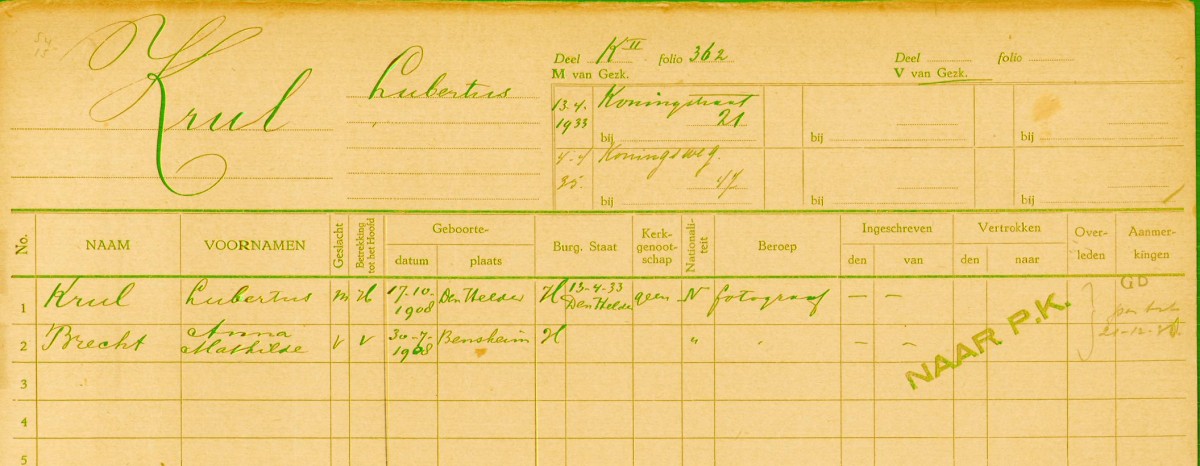 54
15
Krul
Lubertus
Deel K II folio 362
M van Gezk.
Deel folio
V van Gezk.
13.4.
1933
Koningstraat
21
bij
bij
bij
4-4
35.
Koningsweg.
47
bij
bij
bij
No. NAAM VOORNAMEN Geslacht Betrekking tot het Hoofd Geboorte- datum plaats Burg. Staat Kerk-genoot-schap Nationali-teit Beroep Ingeschreven den van Vertrokken den naar Over-leden Aanmer-kingen
1 Krul Lubertus m H 17-10-1908 Den Helder H 13-4-33 Den Helder geen N fotograaf — —
GD
per
2 Brecht Anna Mathilde V V 30-7-1908 Bensheim H " - -
NAAR P.K.
3
4
5